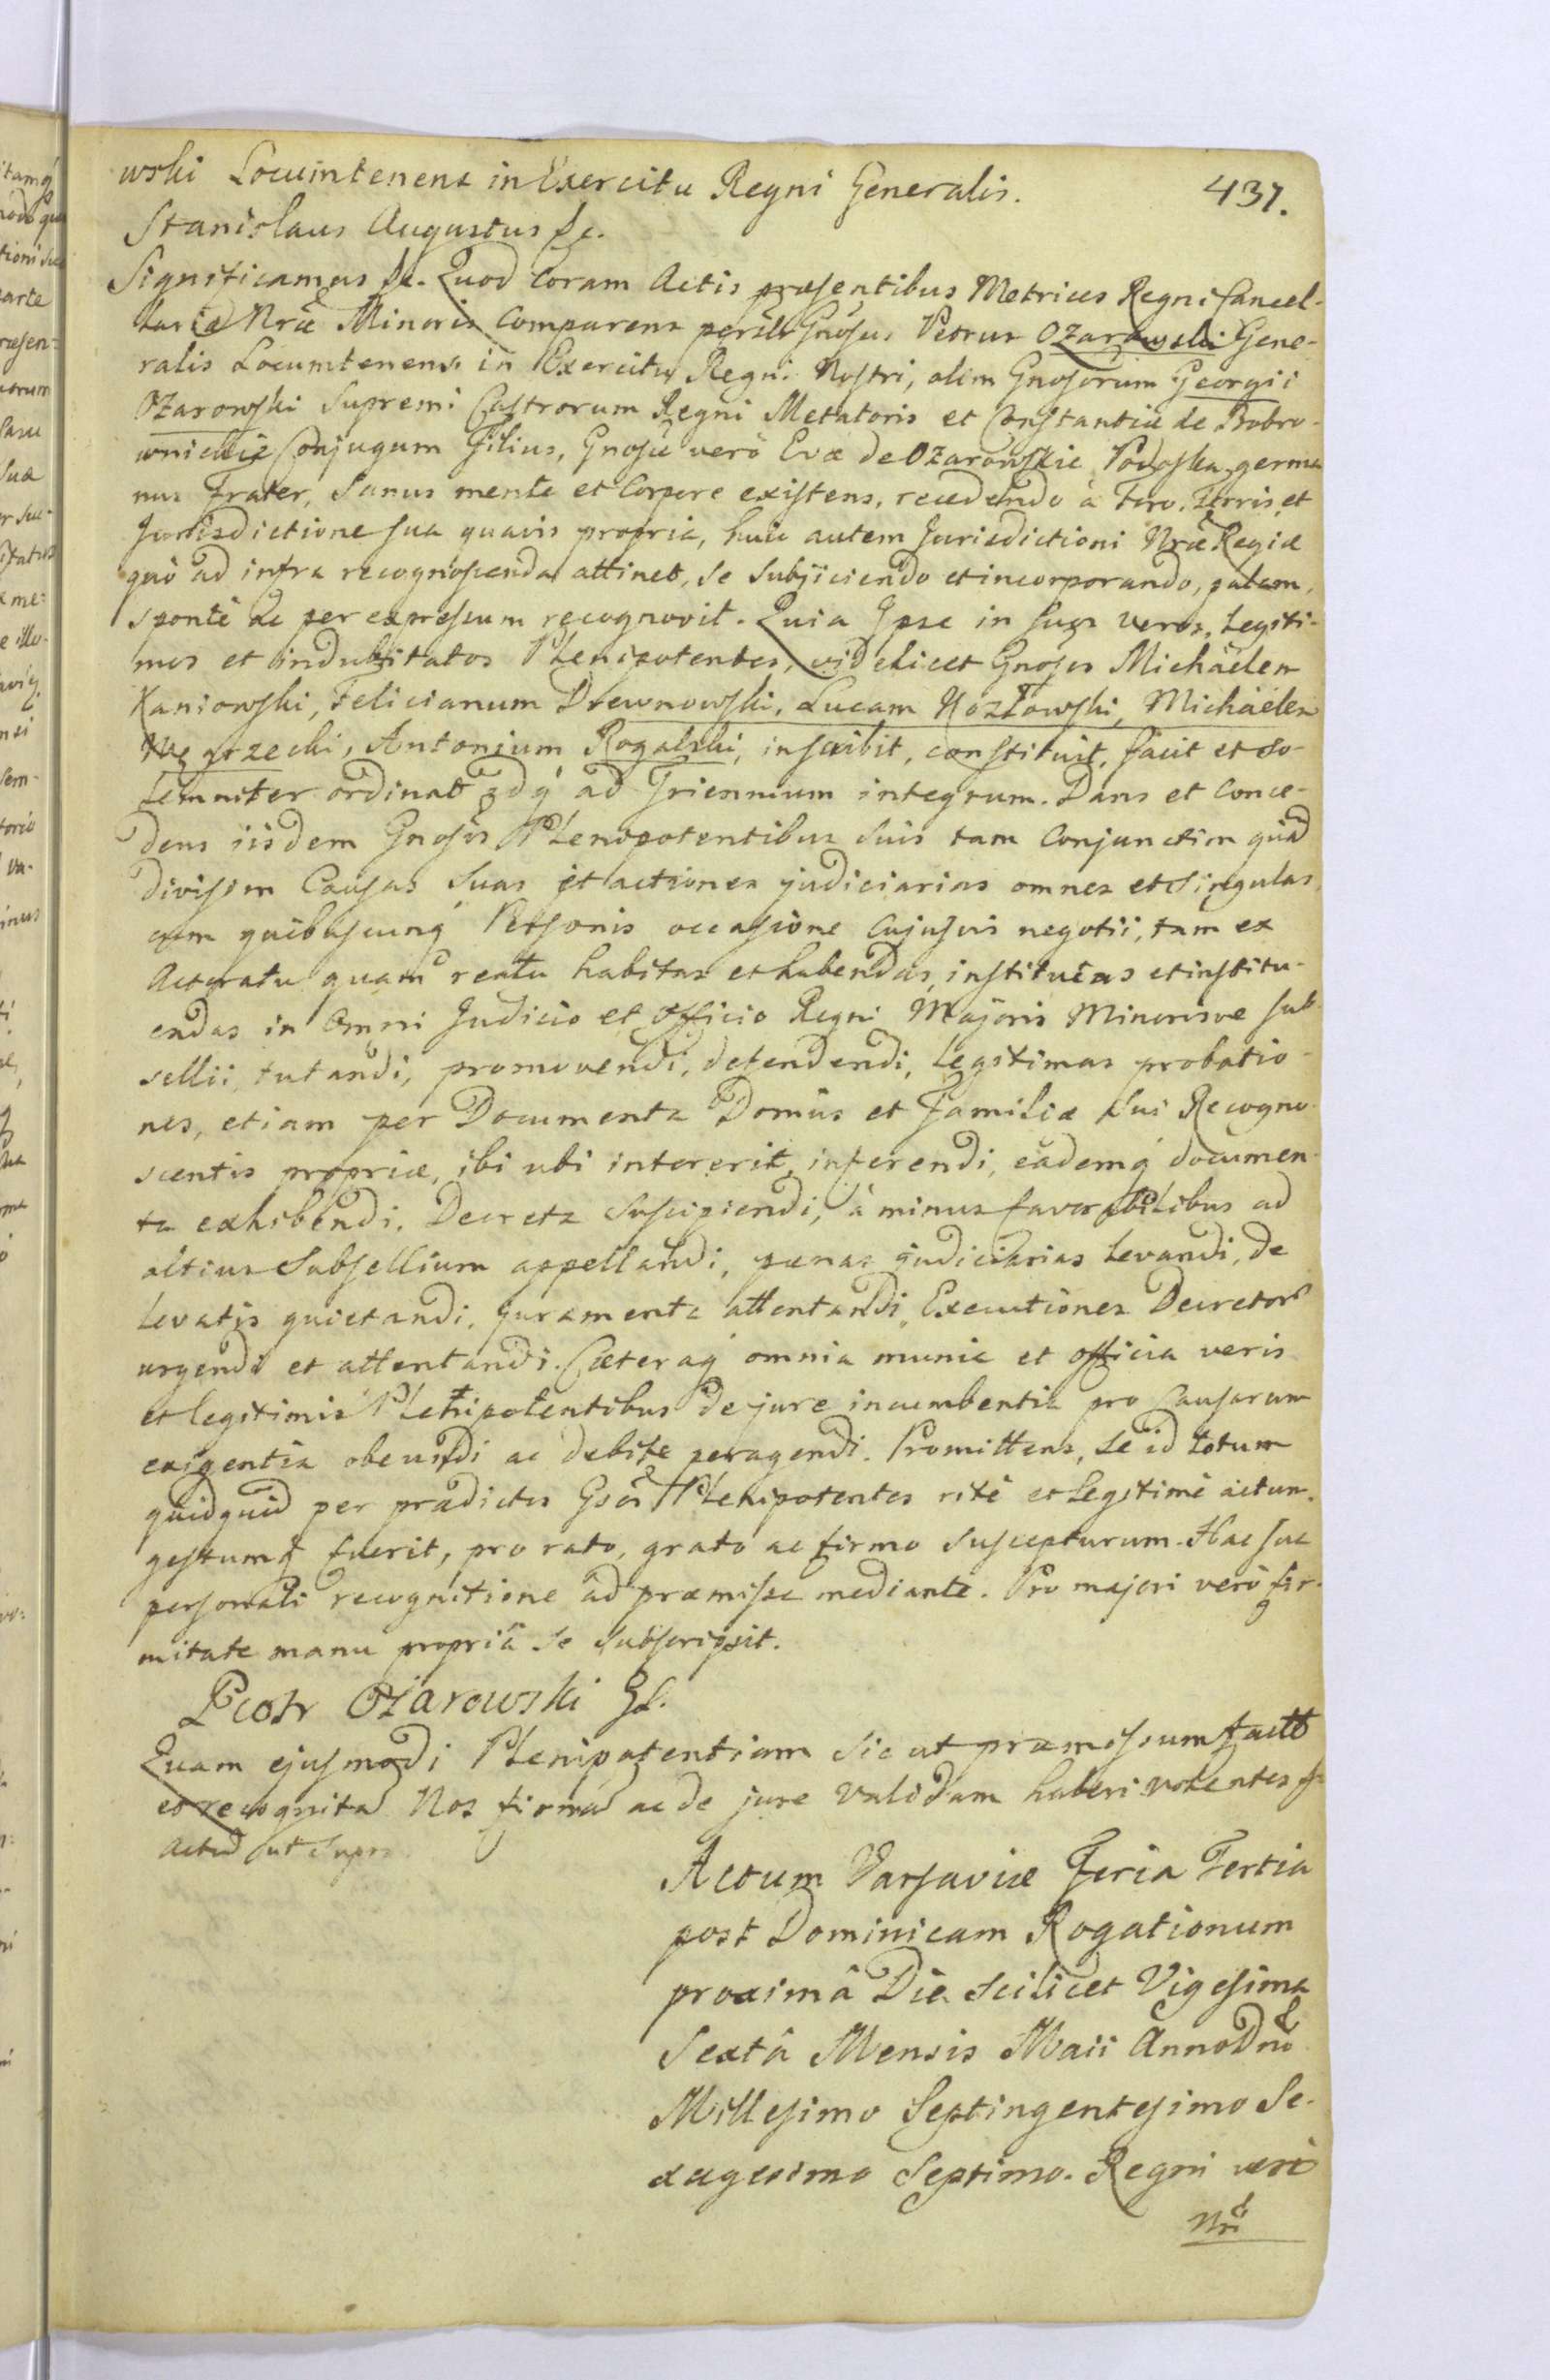 wski Locumtenens in Exercitu Regni Generalis. 437.
Stanislaus Augustus &c.
Significamus &c. Quod Coram Actis præsentibus Metrices Regni Cancel-
lariæ Nræ Minoris Comparens perslr Gnosus Petrus Ożarowski Gene-
ralis Locumtenens in Exercitu Regni Nostri, olim Gnosorum Georgii
Ożarowski Supremi Castrorum Regni Metatoris et Constantiæ de Bobro-
wnickie Conjugum Filius, Gnosæ verò Evæ de Ożarowskie Podoska germa
nus Frater, Sanus mente et Corpore existens, recedendo à Foro, Terris, et
Jurisdictione sua quavis propria, huic autem Jurisdictioni Nræ Regiæ
quò ad infra recognoscenda attinet, se Subjiciendo et incorporando, palam,
sponte ac per expressum recognovit. Quia Ipse in Suos veros, Legiti-
mos et indubitatos Plenipotentes, videlicet Gnosos Michäelem
Kaniowski, Felicianum Drewnowski, Lucam Kozłowski, Michäelem
Węgrzecki, Antonium Rogalski, inscribit, constituit, facit et So-
lemniter ordinat idq́ ad Triennium integrum. Dans et Conce-
dens iisdem Gnosis Plenipotentibus Suis tam Conjunctim quā
divisim Causas Suas et actiones judiciarias omnes et Singulas
cum quibuscunq́ Personis occasione Cujusvis negotii, tam ex
Actoratu quam reatu habitas et habendas, institutas et institu-
endas in Omni Judicio et Officio Regni Majoris Minorisve Sub
sellii, tutandi, promovendi, defendendi, Legitimas probatio-
nes, etiam per Documenta Domûs et Familiæ Sui Recogno-
scentis propriæ, ibi ubi intererit, inferendi, eademq́ documen-
ta exhibendi, Decreta Suscipiendi, à minus favorabilibus ad
altius Subsellium appellandi, pœnas judiciarias Levandi, de
Levatis quietandi, Juramenta attentandi, Executiones Decretor
urgendi et attentandi. Cæteraq́ omnia munia et officia veris
et legitimis Plenipotentibus de jure incumbentia pro Causarum
exigentia obeundi ac debite peragendi. Promittens, Se id totum
quidquid per prædictos Gsos Plenipotentes ritè et Legitimè actum
gestumq́ fuerit, pro rato, grato ac firmo Suscepturum. Hac sua
personali recognitione ad præmissa mediante. Pro majori verò fir-
mitate manu propriâ Se Subscripsit.
Piotr Ożarowski GL.
Quam ejusmodi Plenipotentiam Sic ut præmissum factā
et recognitā Nos firmā ac de jure Validam haberi volentes &
Actū ut Supra
Actum Varsaviæ Feria Tertia
post Dominicam Rogationum
proximâ Die Scilicet Vigesima
Sextâ Mensis Maii Anno Dni
Millesimo Septingentesimo Se-
xagesimo Septimo. Regni verò
Nri